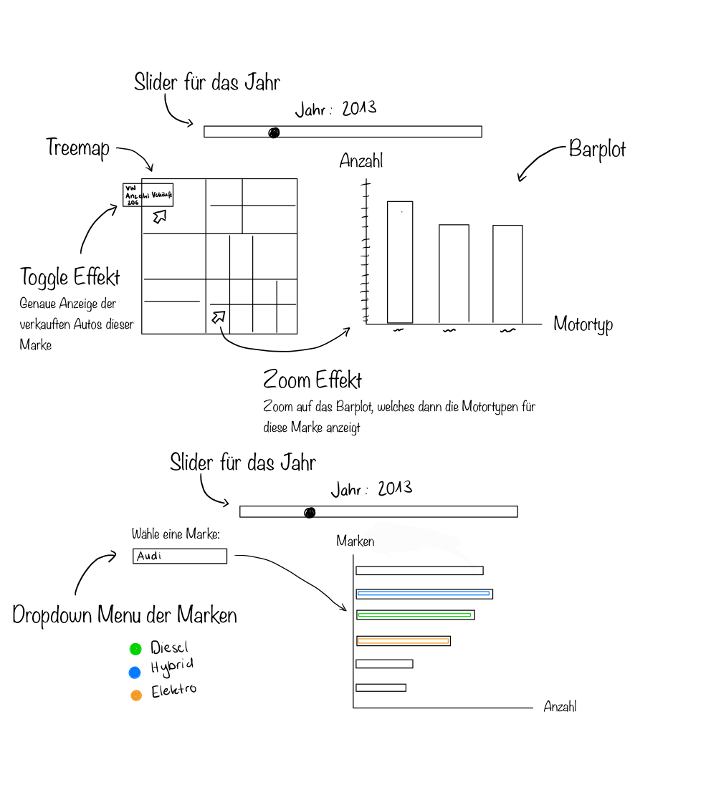 Slider für das Jahr
Jahr: 2013
Treemap
Anzahl
Barplot
VW
Anzahl Verkäufe
206
Toggle Effekt
Genaue Anzeige der
verkauften Autos dieser
Marke
Motortyp
Zoom Effekt
Zoom auf das Barplot, welches dann die Motortypen für
diese Marke anzeigt
Slider für das Jahr
Jahr: 2013
Wähle eine Marke:
Audi
Marken
Dropdown Menu der Marken
Diesel
Hybrid
Elektro
Anzahl